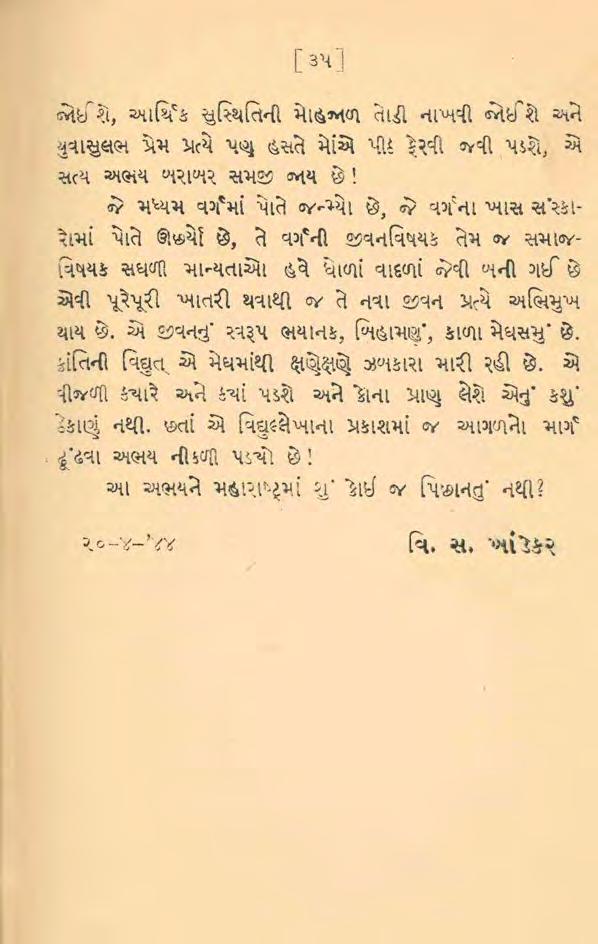 [ ૩૫ ]
જોઈશે, આર્થિક સુસ્થિતિની મોહજાળ તોડી નાખવી જોઈશે અને
યુવાસુલભ પ્રેમ પ્રત્યે પણ હસતે મોંએ પીઠ ફેરવી જવી પડશે, એ
સત્ય અભય બરાબર સમજી જાય છે !
જે મધ્યમ વર્ગમાં પોતે જન્મ્યો છે, જે વર્ગના ખાસ સંસ્કા-
રોમાં પોતે ઊછર્યો છે, તે વર્ગની જીવનવિષયક તેમ જ સમાજ-
વિષયક સઘળી માન્યતાઓ હવે ધોળાં વાદળાં જેવી બની ગઈ છે
એવી પૂરેપૂરી ખાતરી થવાથી જ તે નવા જીવન પ્રત્યે અભિમુખ
થાય છે. એ જીવનનું સ્વરૂપ ભયાનક, બિહામણું, કાળા મેઘસમું છે.
ક્રાંતિની વિદ્યુત્ એ મેઘમાંથી ક્ષણેક્ષણે ઝબકારા મારી રહી છે. એ
વીજળી ક્યારે અને ક્યાં પડશે અને કોના પ્રાણ લેશે એનું કશું
ઠેકાણું નથી. છતાં એ વિદ્યુલ્લેખાના પ્રકાશમાં જ આગળનો માર્ગ
ઢૂંઢવા અભય નીકળી પડ્યો છે !
આ અભયને મહારાષ્ટ્રમાં શું કોઈ જ પિછાનતું નથી?
૨૦–૪–’૪૪ વિ. સ. ખાંડેકર